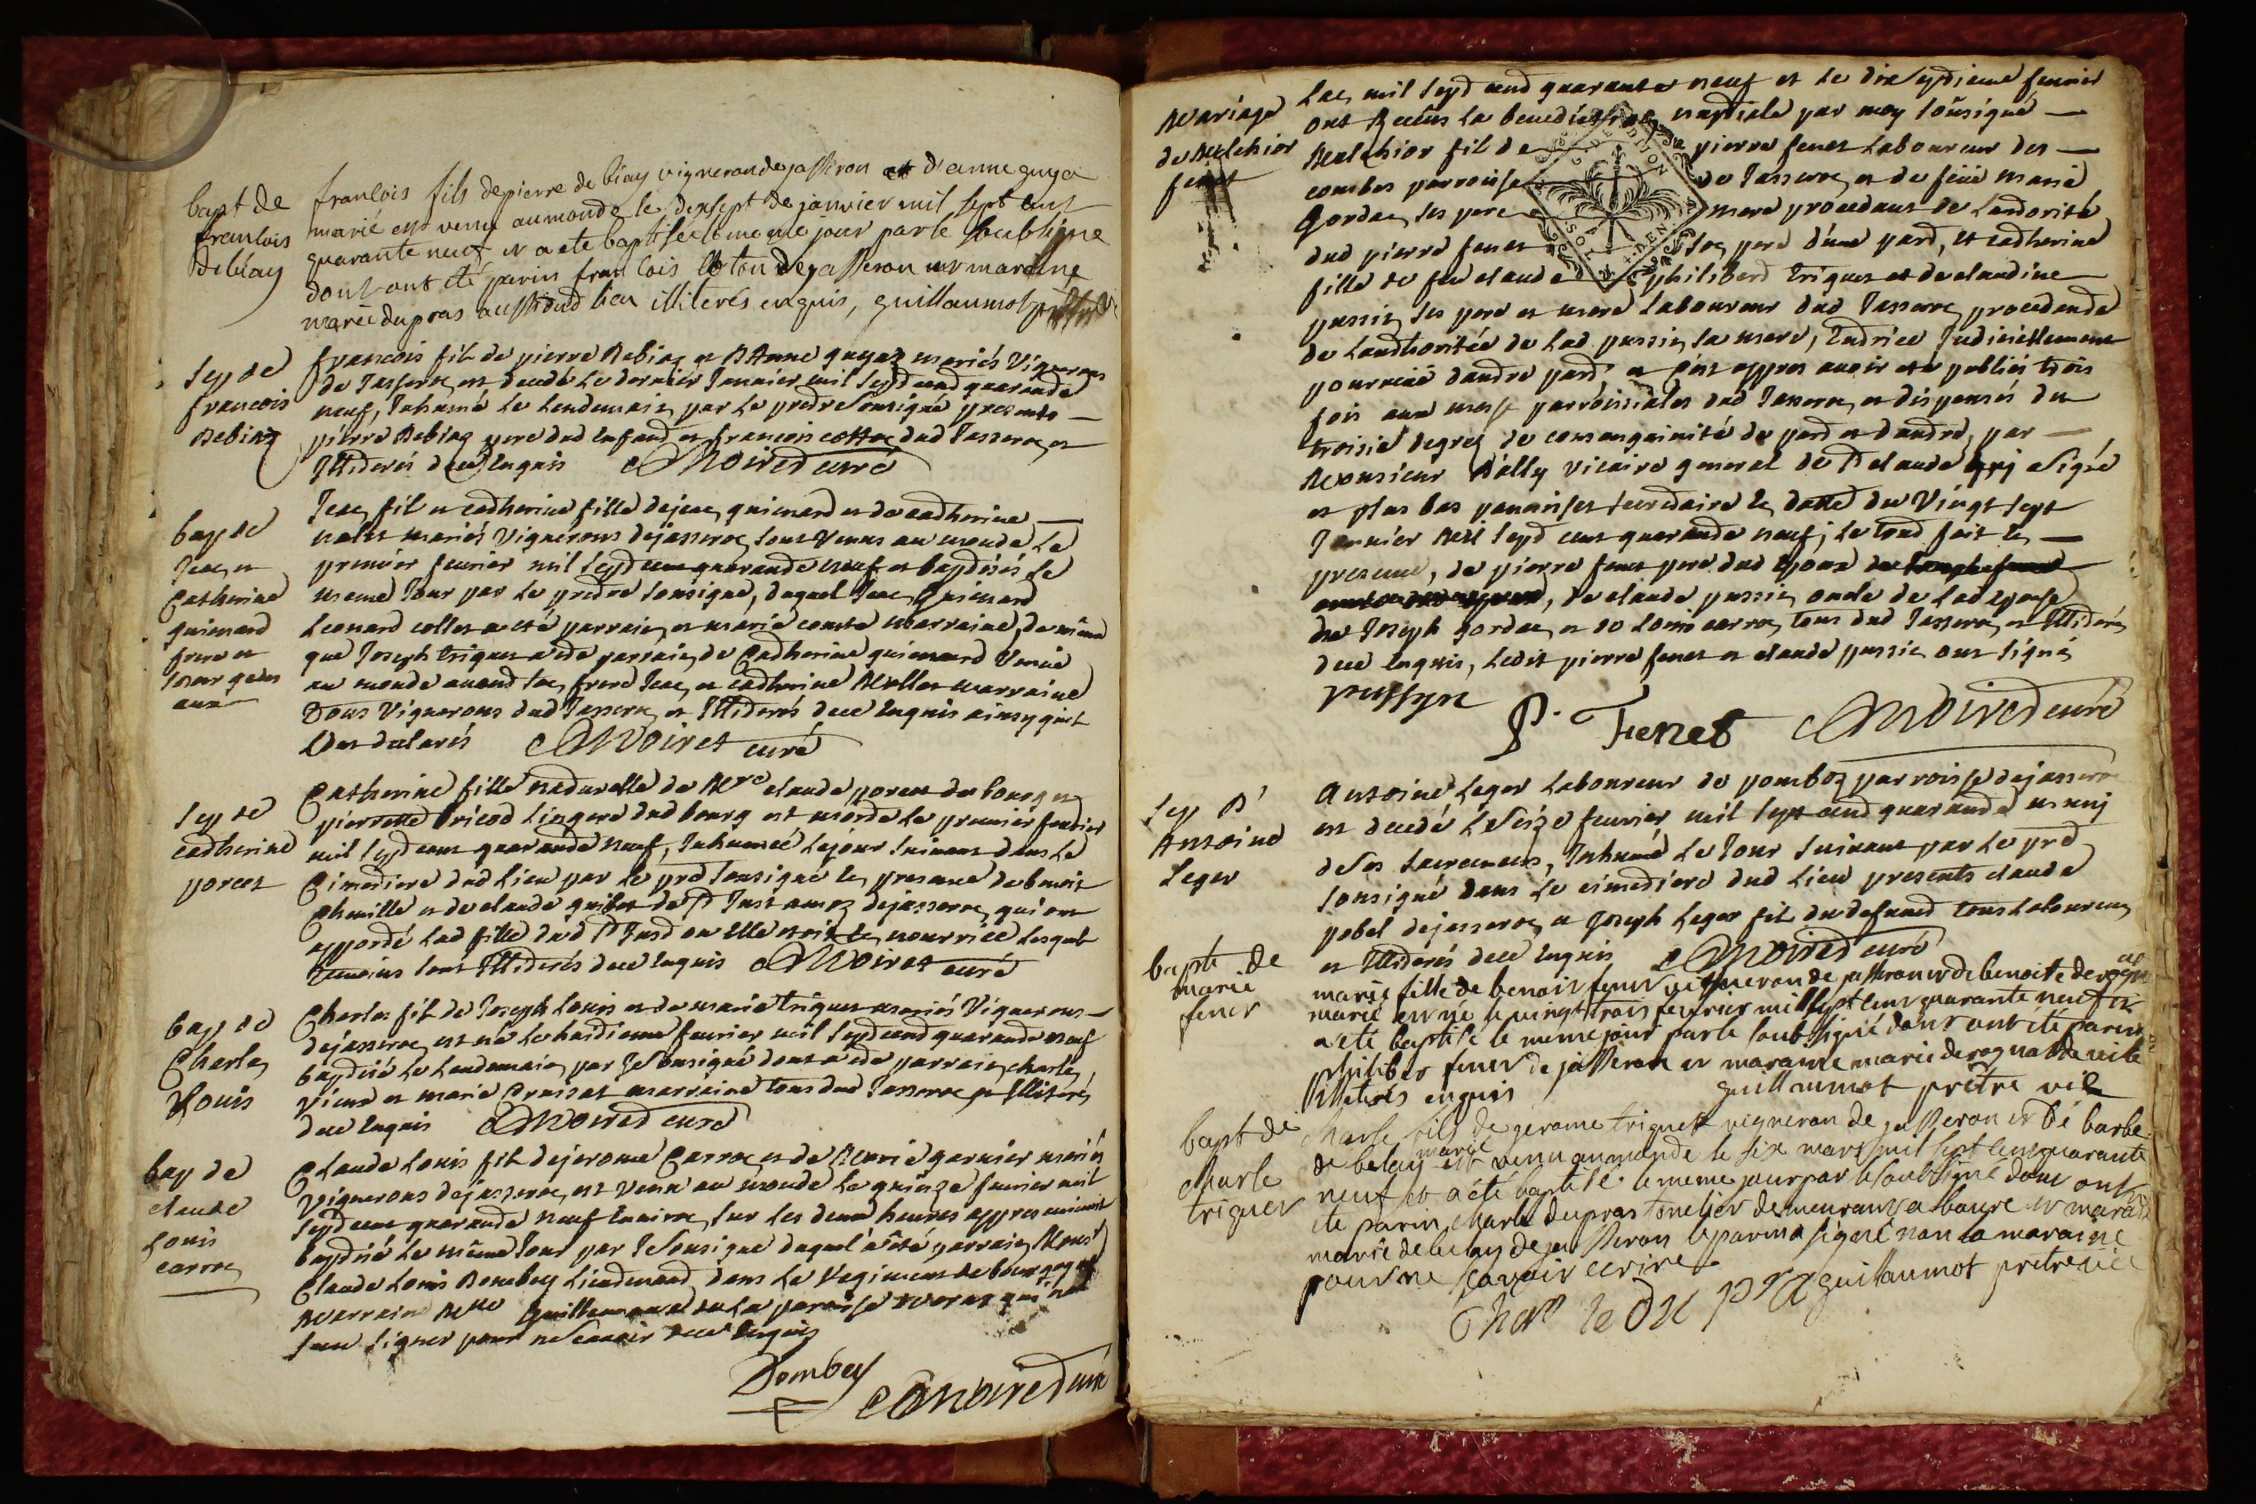 bapt de
francois
debiay
francois fils de pierre de biay vigneron de jasseron et d'anne guya
marié est venu au monde le dixsept de janvier mil sept cent
quarante neuf et a eté baptisé le meme jour par le soubsigné
dont ont été parin francois de jasseron et maraine
marie dupras aussi dud lieu illiterés enquis, guillaumot
sep de
francois
Debiay
francois fil de pierre Debiay et D'Anne guyaz mariés Vignerons
de Jasseron est decedé le dernier Janvier mil sept cend quarande
neuf, Inhumé le lendemain par le predre sousigné presents
pierre Debiay pere dud enfand et francois cottoz dud Jasseron et
Illiderés dece enquis Moiret curé
bap de
Jean et
Catherine
guienard
frere et
soeur gem
aux
Jean fil et catherine fille de jean guienard et de catherine
mariés Vignerons dejasseron sont Venus au monde le
premier fevrier mil sept cent quarande neuf et baptisés le
meme Jour par le predre sousigné, duquel Jean guienard
Leonard collet a eté parrain et marie comte marraine, de même
que Joseph triquet a ete parrain de Catherine guienard Venue
au monde avand son frere Jean et catherine Mollet marraine
tous Vignerons dud Jasseron et Illiderés dece enquis ainsy quil
ont declarés Moiret curé
sep de
catherine
porcet
Catherine fille naturelle de Mre claude porcet de bourg et
pierrette Pricod Lingere dud bourg est morde le premier fevrier
mil sept cent quarande neuf, Inhumée lejour suivant dans le
Cimediere dud lieu par le prd sousigné en presence de benoit
Chenille et de claude guibet de St Just dejasseron, qui ont
apporté lad fille dud St Just ou elle etoit en nourrice lesquels
temoins sont Illiderés dece enquis Moiret curé
bap de
Charle
Louis
Charles fil de Joseph Louis et de marie triquet mariés Vignerons
dejasseron est né le huidieme fevrier mil sept cend quarande neuf
baptisé le lendemain par le sousigné dont a ete parrain charle
Vieux et marie Cruisat marraine tous dud Jasseron et Illiterés
dece enquis Moiret curé
bap de
claude
Louis
carron
Claude Louis fil dejerome Carron et de Marie garnier mariés
Vignerons dejasseron, est Venu au monde le quinze fevrier mil
sept cent quarande neuf environ sur les deux heures appres minuit
baptisé le même Jour par le sousigné duquel a été parrain Monsr
Claude Louis Dombey Lieutenand dans le Regiment de bourgogne
Marraine Mlle de la paroisse qui n'a
sceu signer pour ne scavoir dece enquis
Dombey Moiret curé
Mariage
de Melchior
fenet
Lan mil sept cend quarante neuf et le dix septieme fevrier
ont Receus la benediction nuptiale par moy sousigné
Melchior fil de pierre fenet Laboureur des
combes parroisse de Jasseron et de feüe Marie
Gordan ses pere mere procedant de lautorité
dud pierre fenet son pere d'une pard, et catherine
fille de feu claude philiberd triquet et de claudine
pussin ses pere et mere Laboureur dud Jasseron procedande
de lauthoritée de lad pussin sa mere, tudrice Judiciellement
pourveüe dautre pard et c'est appres avoir ete publiés trois
fois aux messe parroissiales dud Jasseron et dispensés du
troisie degrez de consanguinité de pard et dautre, par
Monsieur Dally vicaire general de St claude qui a signé
et plus bas secredaire en datte du Vingt sept
Janvier Mil sept cent quarande neuf; le toud fait en
presence, de pierre fenet pere dud Epoux
de claude pussin oncle de lad epouse
de Joseph gordan et de Louis carron tous dud Jasseron et Illiderés
dece enquis, ledit pierre fenet et claude pussin ont signé
pussyn P. Fenet Moiret curé
sep D'
Antoine
Leger
Antoine Leger Laboureur de pomboz parroisse dejasseron
est decedé le seize fevrier mil sept cend quarande neuf
de ses sacrements, Inhumé le Jour suivant par le prd
sousigné dans le cimediere dud lieu presents claude
pobel dejasseron et Joseph Leger fil du defund tous Laboureurs
et Illiderés dece enquis Moiret curé
bapte de
marie
fenet
marie fille de benoit fenet vigneron de jasseron et de benoite derognat
marie est né le vingt trois fevrier mil sept cent quarante neuf et
a ete baptisé le meme jour par le soubsigné dont ont été parin
philibert fenet de jasseron et maraine marie derognat
illiterés enquis guillaumot prêtre vic
bapt de
Charle
triquet
Charle fils de gerome triquet vigneron de jasseron et de barbe
de belay marié est venu au monde le six mars mil sept cent quarante
neuf et a été baptisé le meme jour par le soubsigné dont ont
ete parin Charle dupras tonelier demeurant a bourg et maraine
marie de belay de jasseron le parin a signé non la maraine
pour ne scavoir ecrire
guillaumot prêtre vic